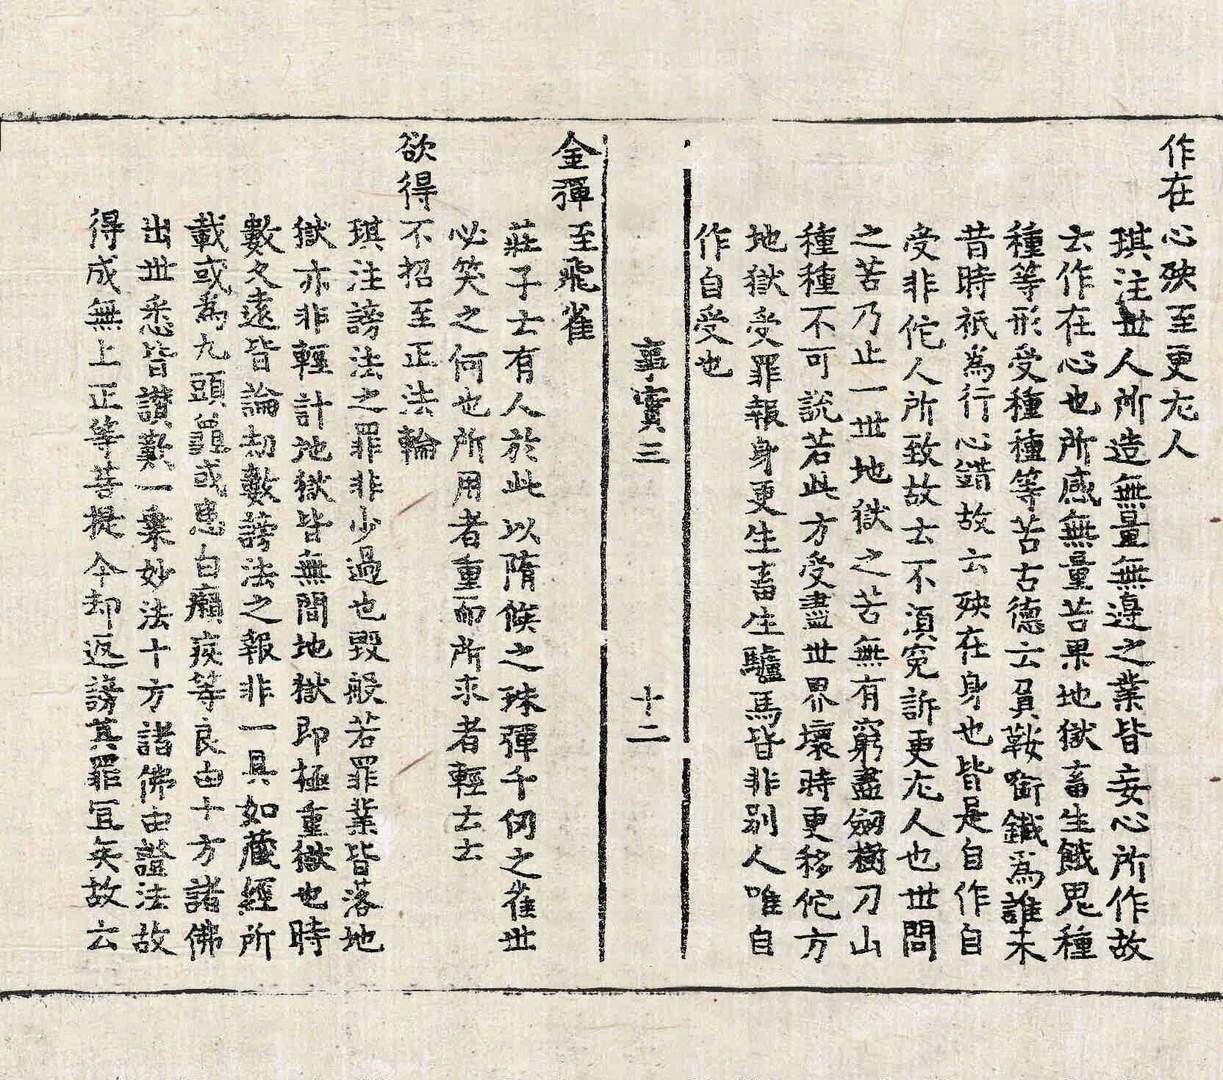 作在心殃至更尤人
琪注世人所造無量無邊之業皆妄心所作故
云作在心也所感無量苦果地獄畜生餓鬼種
種等形受種種等苦古德云負鞍銜鐵爲誰来
昔時祇為行心錯故云殃在身也皆是自作自
受非佗人所致故云不湏寃訴更尤人也世間
之苦乃止一世地獄之苦無有窮盡劒樹刀山
種種不可說若此方受盡世界壞時更移佗方
地獄受罪報身更生畜生驢馬皆非别人唯自
作自受也
事實三
十二
金彈至飛雀
莊子云有人於此以隋侯之珠彈千仞之雀世
必笑之何也所用者重而所求者輕云云
欲得不招至正法輪
琪注謗法之罪非少過也毀般若罪業皆落地
獄亦非輕計地獄皆無間地獄即極重獄也時
數久遠皆論劫數謗法之報非一具如藏經所
載或爲九頭龜或患白癩疾等良由十方諸佛
出世悉皆讃歎一乗妙法十方諸佛由證法故
得成無上正等菩提今却返謗其罪冝矣故云